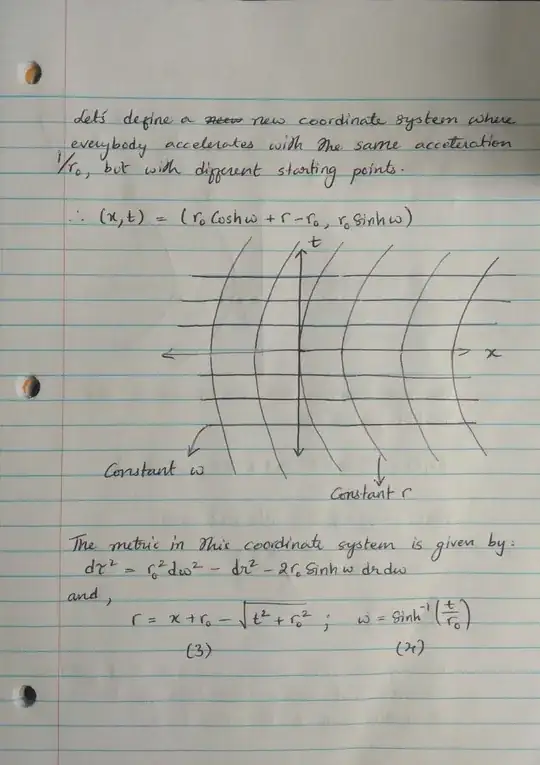 Let's define a new coordinate system where
everybody accelerates with the same acceleration
1/r₀, but with different starting points.
∴ (x,t) = (r₀ Coshω + r - r₀, r₀ Sinhω)
t
x
Constant ω
Constant r
The metric in this coordinate system is given by:
dτ² = r₀² dω² - dr² - 2r₀ Sinhω drdω
and,
r = x + r₀ - √(t² + r₀²) ; ω = Sinh⁻¹(t/r₀)
(3) (4)